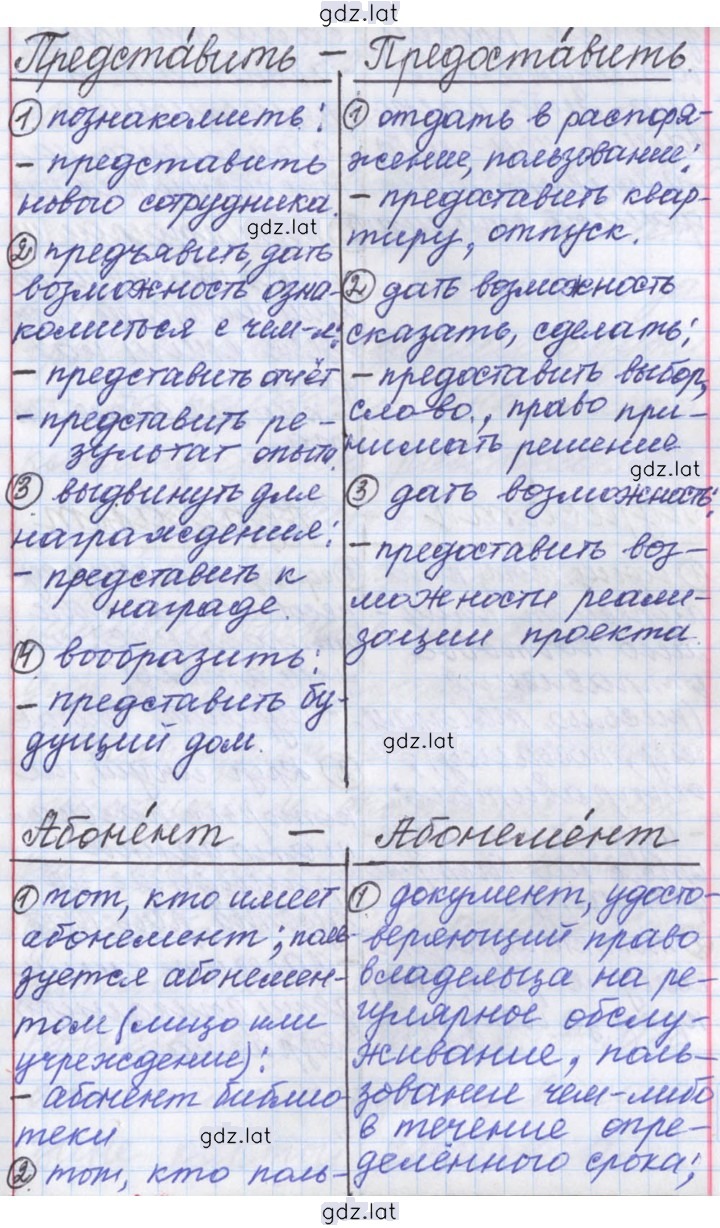 gdz.lat
Предста́вить — Предоста́вить.
① познакомить:
– представить
нового сотрудника.
gdz.lat
② предъявить, дать
возможность озна-
комиться с чем-л.:
– представить отчёт
– представить ре-
зультат опыта.
③ выдвинуть для
награждения:
– представить к
награде.
④ вообразить:
– представить бу-
дущий дом.
① отдать в распоря-
жение, пользование;
– предоставить квар-
тиру, отпуск.
② дать возможность
сказать, сделать;
– предоставить выбор,
слово., право при-
нимать решение
gdz.lat
③ дать возможность;
– предоставить воз-
можности реали-
зации проекта.
gdz.lat
Абоне́нт — Абонеме́нт
① тот, кто имеет
абонемент; поль-
зуется абонемен-
том (лицо или
учреждение):
– абонент библио-
теки
gdz.lat
② тот, кто поль-
① документ, удосто-
веряющий право
владельца на ре-
гулярное обслу-
живание, поль-
зование чем-либо
в течение опре-
делённого срока;
gdz.lat